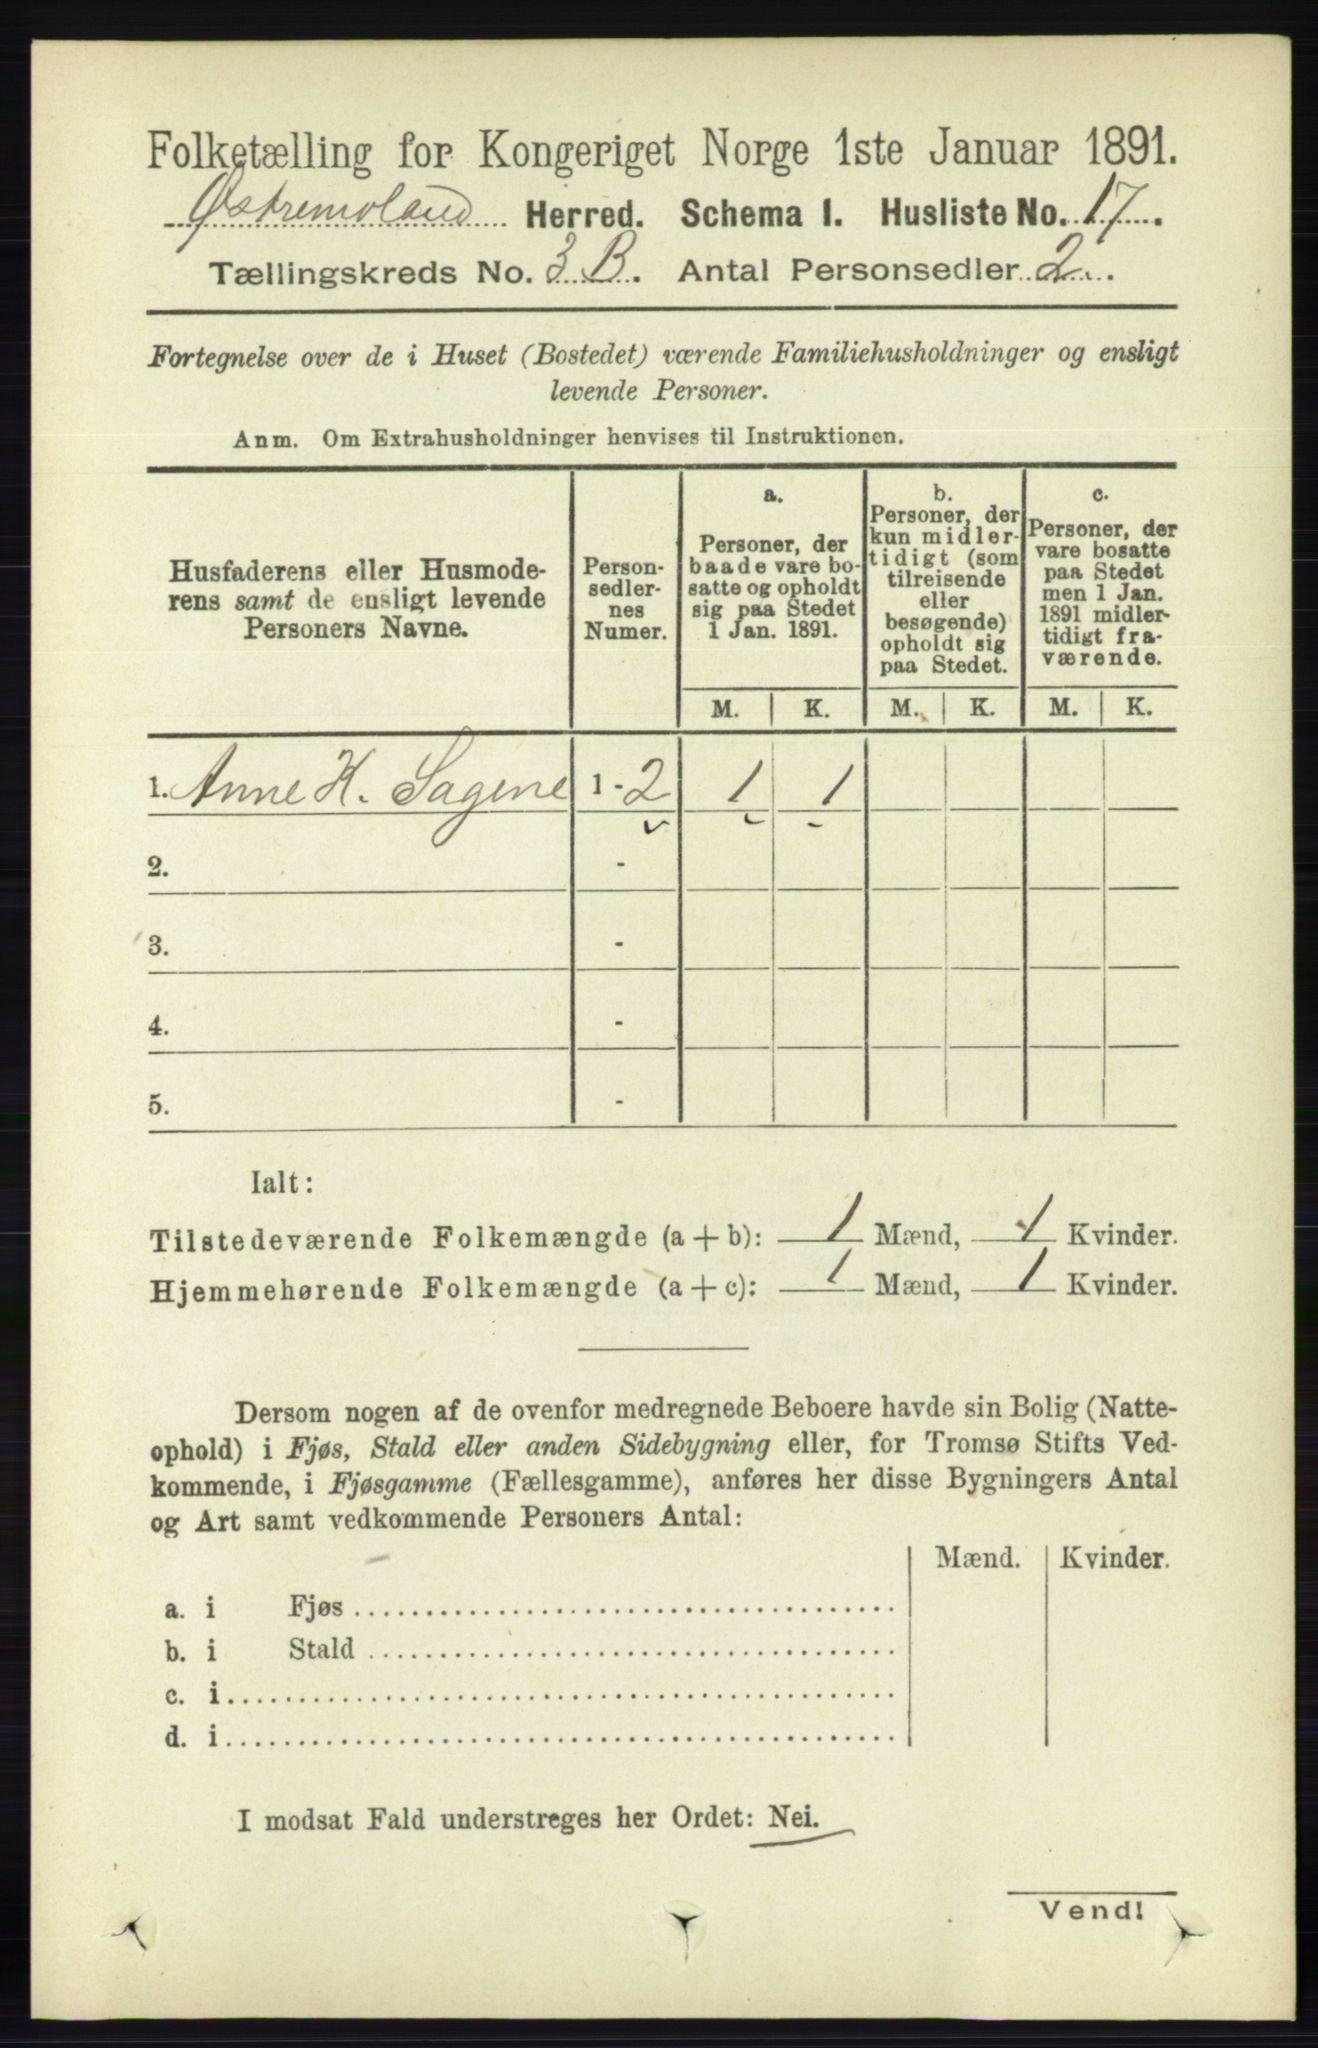 Folketælling for Kongeriget Norge 1ste Januar 1891.
Østremoland Herred. Schema I. Husliste No. 17.
Tællingskreds No. 3 B. Antal Personsedler 2.
Fortegnelse over de i Huset (Bostedet) værende Familiehusholdninger og ensligt
levende Personer.
Anm. Om Extrahusholdninger henvises til Instruktionen.
Husfaderens eller Husmode-
rens samt de ensligt levende
Personers Navne.
Person-
sedler-
nes
Numer.
a.
Personer, der
baade vare bo-
satte og opholdt
sig paa Stedet
1 Jan. 1891.
b.
Personer, der
kun midler-
tidigt (som
tilreisende
eller
besøgende)
opholdt sig
paa Stedet.
c.
Personer, der
vare bosatte
paa Stedet
men 1 Jan.
1891 midler-
tidigt fra-
værende.
M. K. M. K. M. K.
1. Anne K. Sagene 1 - 2 1 1
2. -
3. -
4. -
5. -
Ialt:
Tilstedeværende Folkemængde (a + b): 1 Mænd, 1 Kvinder.
Hjemmehørende Folkemængde (a + c): 1 Mænd, 1 Kvinder.
Dersom nogen af de ovenfor medregnede Beboere havde sin Bolig (Natte-
ophold) i Fjøs, Stald eller anden Sidebygning eller, for Tromsø Stifts Ved-
kommende, i Fjøsgamme (Fællesgamme), anføres her disse Bygningers Antal
og Art samt vedkommende Personers Antal:
Mænd. Kvinder.
a. i Fjøs
b. i Stald
c. i
d. i
I modsat Fald understreges her Ordet: Nei.
Vend!